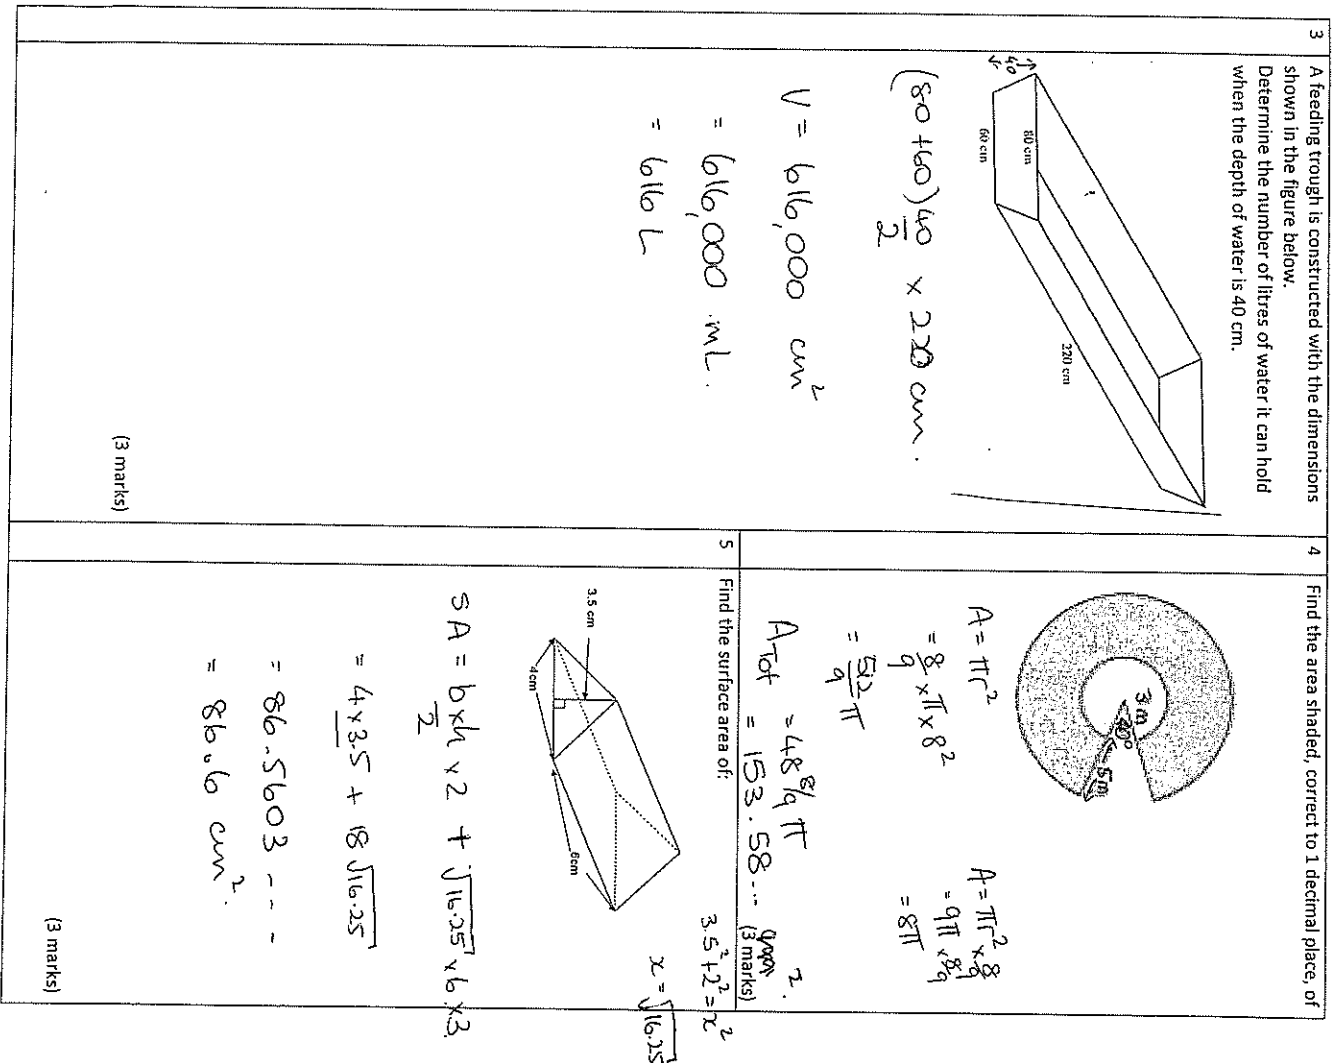 3
A feeding trough is constructed with the dimensions
shown in the figure below.
Determine the number of litres of water it can hold
when the depth of water is 40 cm.
40
80 cm
60 cm
220 cm
(80 +60) 40/2 x 220 cm.
V = 616,000 cm²
= 616,000 mL.
= 616 L
(3 marks)
4
Find the area shaded, correct to 1 decimal place, of
3 m
40°
5 m
A = πr²
= 8/9 x π x 8²
= 512/9 π
A = πr² x 8/9
= 9π x 8/9
= 8π
A Tot = 48 8/9 π
= 153.58... ².
(3 marks)
5
Find the surface area of:
3.5 cm
4cm
6cm
3.5² + 2² = x²
x = √16.25
SA = bxh/2 x 2 + √16.25 x 6 x 3
= 4 x 3.5 + 18√16.25
= 86.5603 ---
= 86.6 cm².
(3 marks)